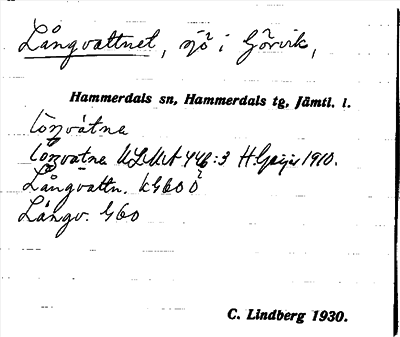 Långvattnet, sjö i Görvik,
Hammerdals sn, Hammerdals tg, Jämtl. l.
lo̊ŋvátnə
lo̊ŋvatnə ULMA 446:3 H. Geijer 1910.
Långvattn. kG60 Ö
Långv. G60
C. Lindberg 1930.